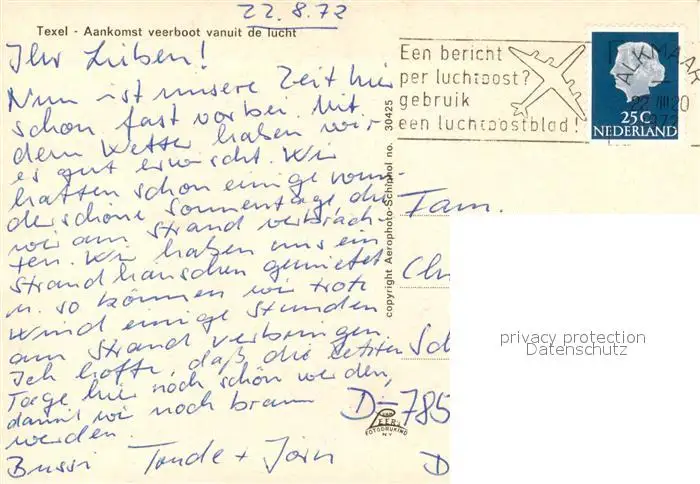 22.8.72
Texel - Aankomst veerboot vanuit de lucht
Ihr Lieben!
Nun ist unsere Zeit hier
schon fast vorbei. Mit
dem Wetter haben wir
es gut erwischt. Wir
hatten schon einige wun-
derschöne Sonnentage, die
wir am Strand verbrach-
ten. Wir haben uns ein
Strandhäuschen gemietet
u. so können wir trotz
Wind einige Stunden
am Strand verbringen.
Ich hoffe, daß die letzten
Tage hier noch schön werden,
damit wir noch braun
werden.
Bussi Traude + Jörn
copyright Aerophoto-Schiphol no. 30425
Een bericht
per luchtpost?
gebruik
een luchtpostblad!
ALKMAAR
22 VIII 20
1972
25C
NEDERLAND
Fam.
Ch
Sch
D-785
D
VAN
LEER's
FOTODRUKIND
N.V.
privacy protection
Datenschutz